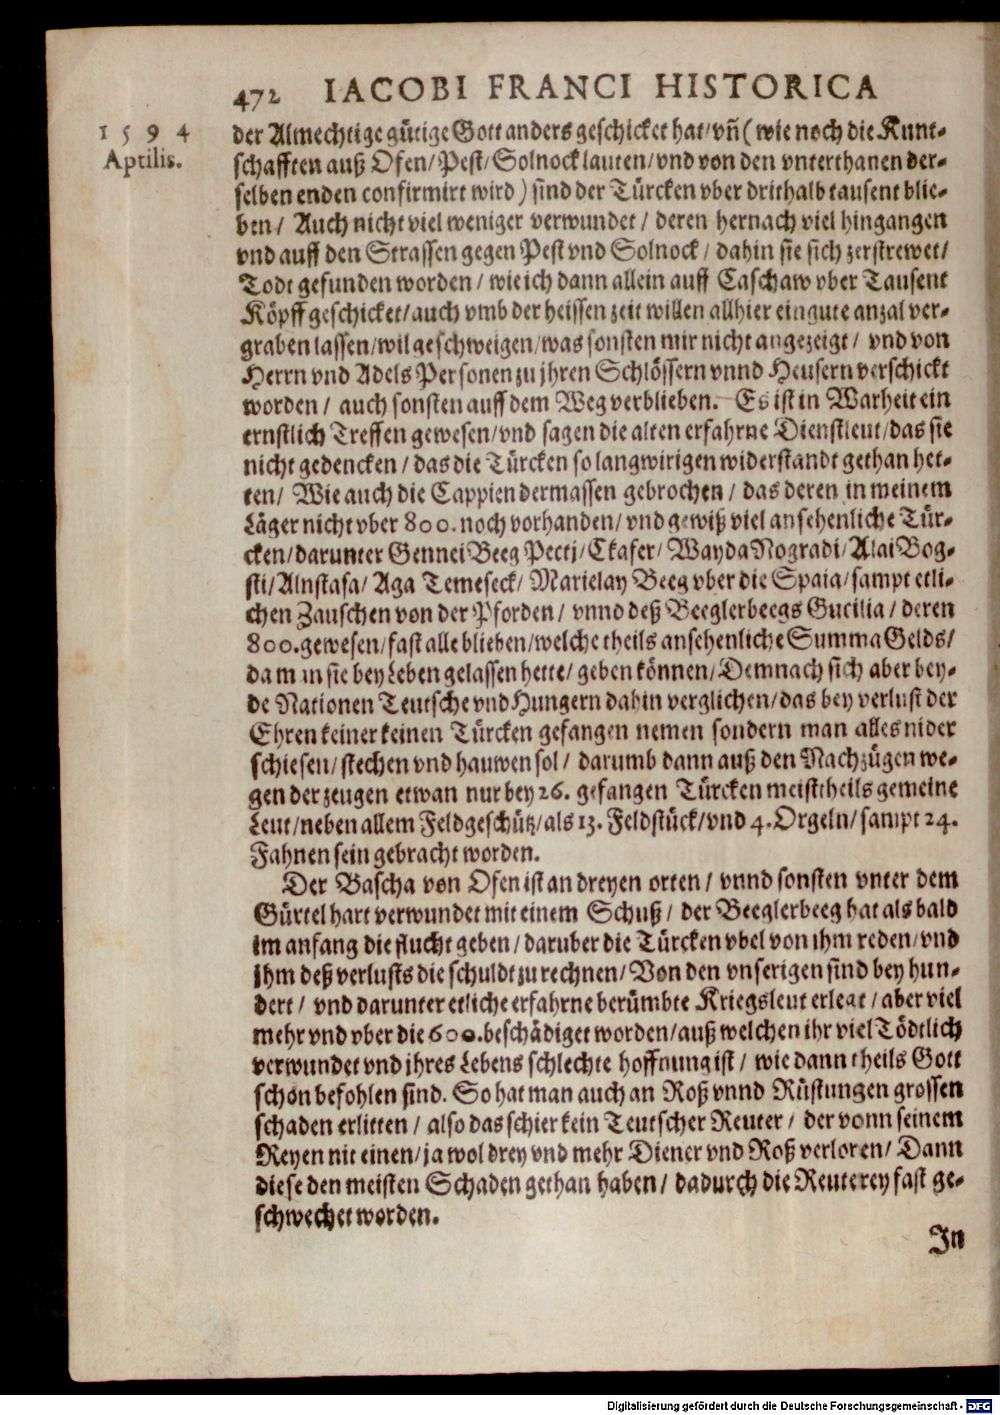 472 IACOBI FRANCI HISTORICA
1594
Aptilis.
der Almechtige gütige Gott anders geschicket hat/vñ (wie noch die Kunt-
schafften auß Ofen/Pest/Solnock lauten/vnd von den vnterthanen der-
selben enden confirmirt wird) sind der Türcken vber drithalb tausent blie-
ben/ Auch nicht viel weniger verwundet/ deren hernach viel hingangen
vnd auff den Strassen gegen Pest vnd Solnock/ dahin sie sich zerstrewet/
Todt gefunden worden/ wie ich dann allein auff Caschaw vber Tausent
Köpff geschicket/auch vmb der heissen zeit willen allhier ein gute anzal ver-
graben lassen/wil geschweigen/was sonsten mir nicht angezeigt/ vnd von
Herrn vnd Adels Personen zu jhren Schlössern vnnd Heusern verschickt
worden/ auch sonsten auff dem Weg verblieben. Es ist in Warheit ein
ernstlich Treffen gewesen/vnd sagen die alten erfahrne Dienstleut/das sie
nicht gedencken/das die Türcken so langwirigen widerstandt gethan het-
ten/ Wie auch die Cappien dermassen gebrochen/ das deren in meinem
Läger nicht vber 800. noch vorhanden/vnd gewiß viel ansehenliche Tür-
cken/darunter Gennei Beeg Pecti/Ckafer/ Wayda Nogradi/Alai Bog-
sti/Alnstafa/ Aga Temeseck/ Marielay Beeg vber die Spaia/sampt etli-
chen Zauschen von der Pforden/ vnnd deß Beeglerbeegs Gucilia/ deren
800. gewesen/fast alle blieben/welche theils ansehenliche Summa Gelds/
da m in sie bey Leben gelassen hette/geben können/Demnach sich aber bey-
de Nationen Teutsche vnd Hungern dahin verglichen/das bey verlust der
Ehren keiner keinen Türcken gefangen nemen sondern man alles nider
schiesen/stechen vnd hauwen sol/ darumb dann auß den Nachzügen we-
gen der zeugen etwan nur bey 26. gefangen Türcken meistheils gemeine
Leut/neben allem Feldgeschütz/als 13. Feldstück/vnd 4. Orgeln/sampt 24.
Fahnen sein gebracht worden.
Der Bascha von Ofen ist an dreyen orten/ vnnd sonsten vnter dem
Gürtel hart verwundet mit einem Schuß/ der Beeglerbeeg hat als bald
im anfang die flucht geben/daruber die Türcken vbel von ihm reden/vnd
jhm deß verlusts die schuldt zu rechnen/Von den vnserigen sind bey hun-
dert/ vnd darunter etliche erfahrne berümbte Kriegsleut erlegt/aber viel
mehr vnd vber die 600. beschädiget worden/auß welchen ihr viel Tödtlich
verwundet vnd jhres Lebens schlechte hoffnung ist/ wie dann theils Gott
schon befohlen sind. So hat man auch an Roß vnnd Rüstungen grossen
schaden erlitten/ also das schier kein Teutscher Reuter/ der vonn seinem
Reyen nit einen/ja wol drey vnd mehr Diener vnd Roß verloren/ Dann
diese den meisten Schaden gethan haben/ dadurch die Reuterey fast ge-
schwechet worden.
In
Digitalisierung gefördert durch die Deutsche Forschungsgemeinschaft - DFG